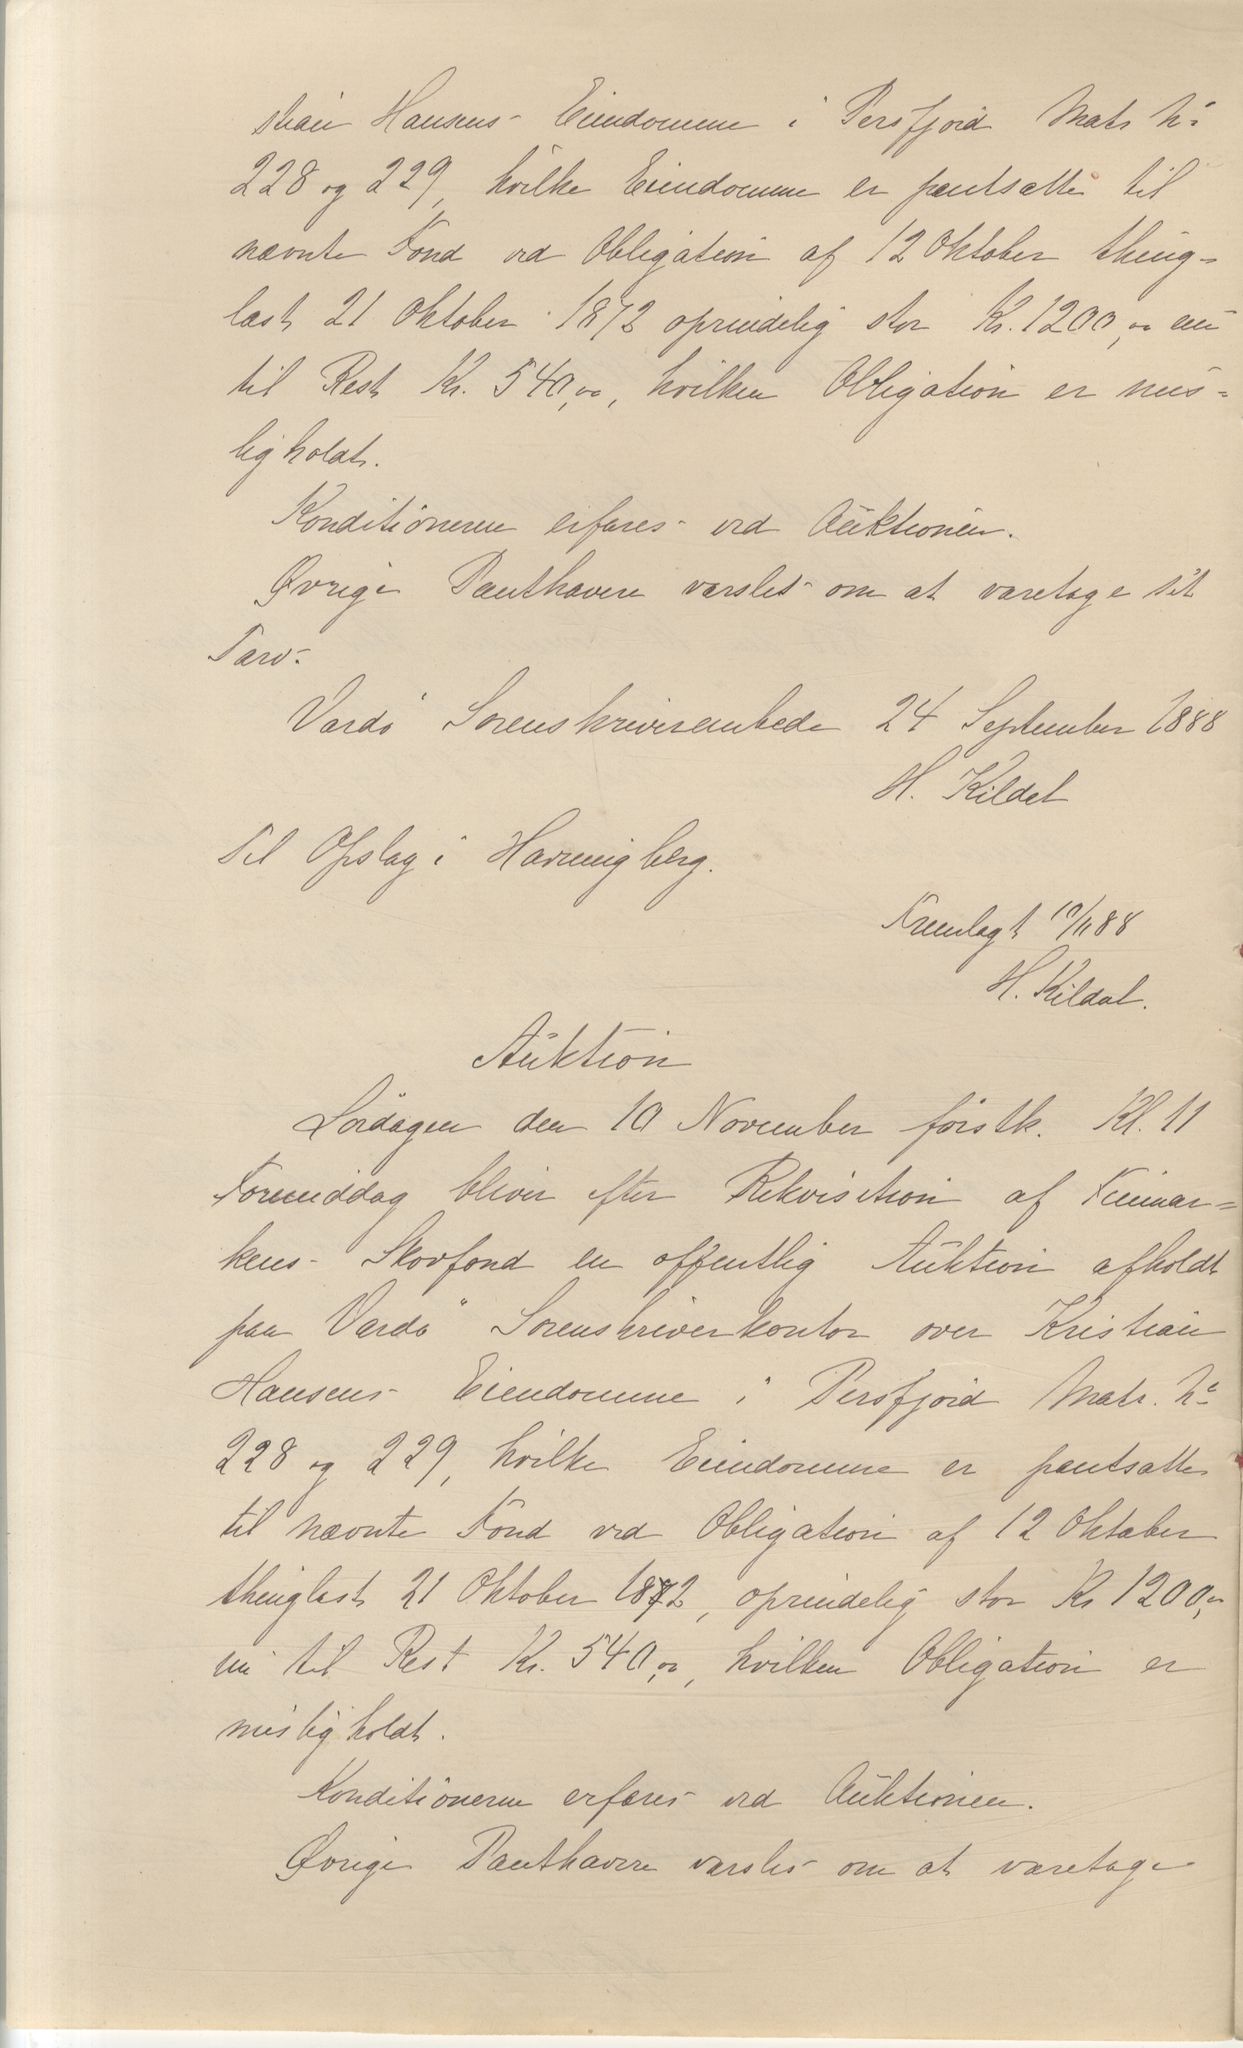 stian Hansens Eiendomme i Persfjord Matr No
228 og 229, hvilke Eiendomme er pantsatte til
nævnte Fond ved Obligation af 12 Oktober thing-
læst 21 Oktober 1872 oprindelig stor Kr. 1200,00 nu
til Rest Kr. 540,00, hvilken Obligation er mis-
ligholdt.
Konditionerne erfares ved Auktionen.
Øvrige Panthavere varsles om at varetage sit
Tarv.
Vardö Sorenskriverembede 24 September 1888
H. Kildal
Til Opslag i Havningberg.
Fremlagt 10/11 88
H. Kildal.
Auktion
Lördagen den 10 November förstk. Kl. 11
Formiddag bliver efter Rekvisition af Finmar-
kens Skovfond en offentlig Auktion afholdt
paa Vardö Sorenskriverkontor over Kristian
Hansens Eiendomme i Persfjord Matr. No
228 og 229, hvilke Eiendomme er pantsatte
til nævnte Fond ved Obligation af 12 Oktober
thinglæst 21 Oktober 1872, oprindelig stor Kr 1200,00
nu til Rest Kr. 540,00, hvilken Obligation er
misligholdt.
Konditionerne erfares ved Auktionen.
Øvrige Panthavere varsles om at varetage